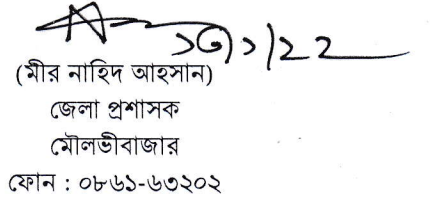 ১৩/১/২২
(মীর নাহিদ আহসান)
জেলা প্রশাসক
মৌলভীবাজার
ফোন : ০৮৬১-৬৩২০২